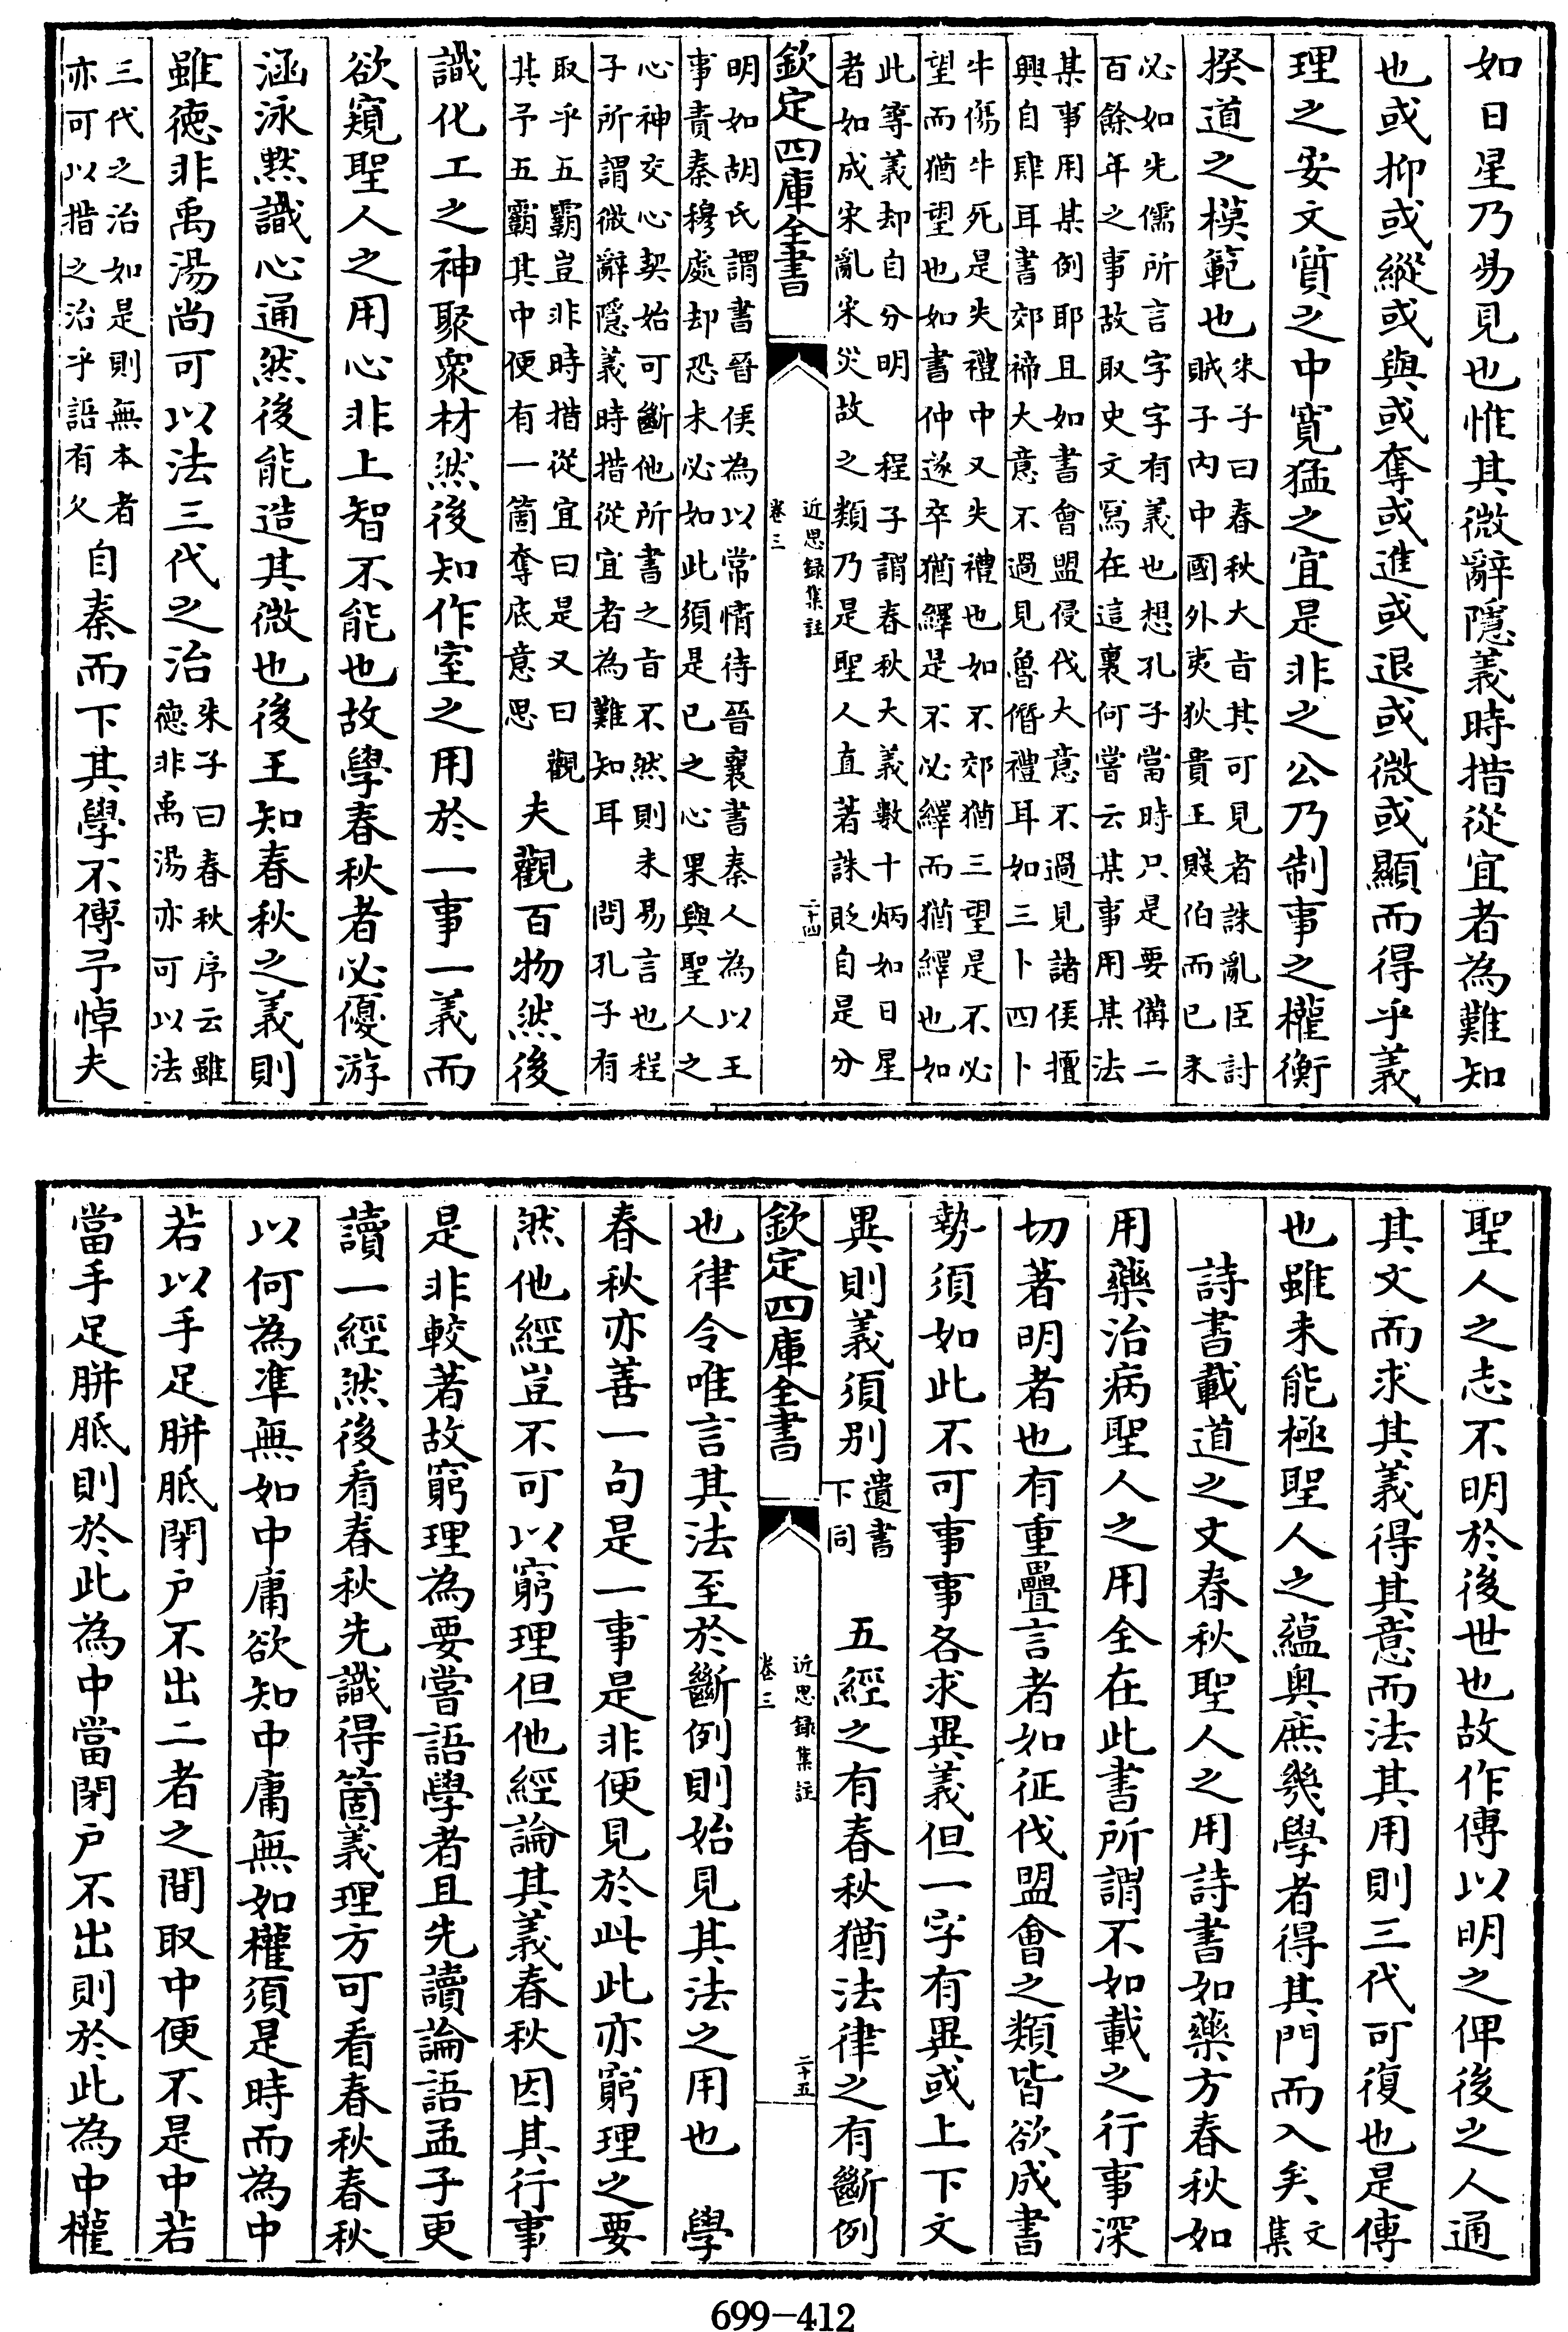 如日星乃易見也惟其微辭隱義時措從宜者為難知
也或抑或縱或與或奪或進或退或微或顯而得乎義
理之安文質之中寛猛之宜是非之公乃制事之權衡
揆道之模範也
朱子曰春秋大㫖其可見者誅亂臣討
賊子内中國外夷狄貴王賤伯而已未
必如先儒所言字字有義也想孔子當時只是要備二
百餘年之事故取史文冩在這裏何嘗云某事用某法
某事用某例耶且如書會盟侵伐大意不過見諸侯擅
興自肆耳書郊禘大意不過見魯僭禮耳如三卜四卜
牛傷牛死是失禮中又失禮也如不郊猶三望是不必
望而猶望也如書仲遂卒猶繹是不必繹而猶繹也如
此等義却自分明 程子謂春秋大義數十炳如日星
者如成宋亂宋災故之類乃是聖人直著誅貶自是分
欽定四庫全書
近思録集註
卷三
二十四
明如胡氏謂書晉侯為以常情待晉襄書秦人為以王
事責秦穆處却恐未必如此須是已之心果與聖人之
心神交心契始可斷他所書之㫖不然則未易言也程
子所謂微辭隱義時措從宜者為難知耳 問孔子有
取乎五霸豈非時措從宜曰是又曰觀
其予五霸其中便有一箇奪底意思
夫觀百物然後
識化工之神聚衆材然後知作室之用於一事一義而
欲窺聖人之用心非上智不能也故學春秋者必優游
涵泳黙識心通然後能造其微也後王知春秋之義則
雖德非禹湯尚可以法三代之治
朱子曰春秋序云雖
德非禹湯亦可以法
三代之治如是則無本者
亦可以措之治乎語有欠
自秦而下其學不傳予悼夫
聖人之志不明於後世也故作傳以明之俾後之人通
其文而求其義得其意而法其用則三代可復也是傳
也雖未能極聖人之藴奥庶幾學者得其門而入矣
文
集
詩書載道之文春秋聖人之用詩書如藥方春秋如
用藥治病聖人之用全在此書所謂不如載之行事深
切著明者也有重疊言者如征伐盟會之類皆欲成書
勢須如此不可事事各求異義但一字有異或上下文
異則義須别
遺書
下同
五經之有春秋猶法律之有斷例
欽定四庫全書
近思録集註
卷三
二十五
也律令唯言其法至於斷例則始見其法之用也 學
春秋亦善一句是一事是非便見於此此亦窮理之要
然他經豈不可以窮理但他經論其義春秋因其行事
是非較著故窮理為要嘗語學者且先讀論語孟子更
讀一經然後看春秋先識得箇義理方可看春秋春秋
以何為凖無如中庸欲知中庸無如權須是時而為中
若以手足胼胝閉户不出二者之間取中便不是中若
當手足胼胝則於此為中當閉户不出則於此為中權
699-412